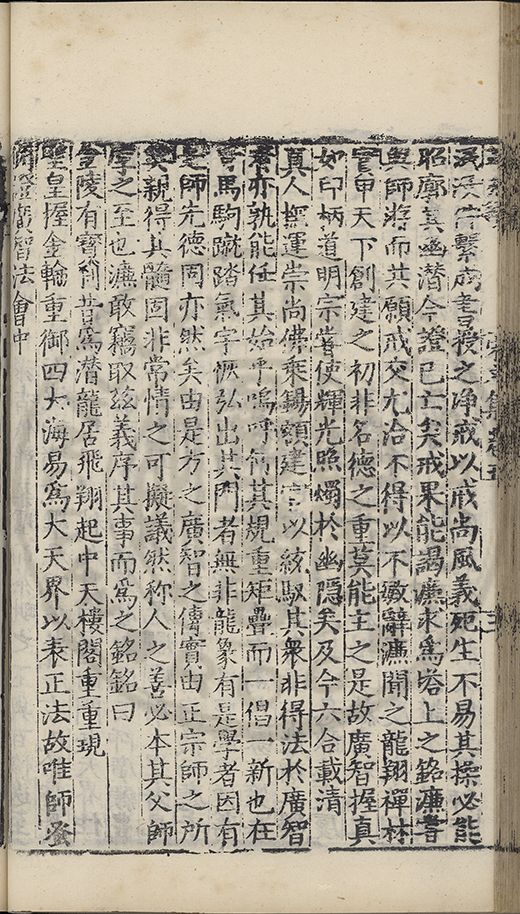 繫成書授之淨戒以戒尚風義死生不易其操必能
昭廓其幽潛今證已亡矣戒果能謁濂求爲塔上之銘濂嘗
與師游而共願戒交尤洽不得以不敏辭濂聞之龍翔禪林
實甲天下創建之初非名德之重莫能主之是故廣智握眞
如印柄道明宗嘗使輝光照燭於幽隱矣及今六合載清
眞人撫運崇尚佛乘錫額建官以統馭其衆非得法於廣智
者亦孰能任其始乎嗚呼何其規重矩疊而一倡一新也在
昔馬駒蹴踏氣宇恢弘出其門者無非龍象有是學者因有
是師先德固亦然矣由是方之廣智之傳實由正宗師之所
矣親得其髓固非常情之可擬議然稱人之善必本其父師
厚之至也濂敢竊取茲義序其事而爲之銘銘曰
金陵有寶刹昔爲潛龍居飛翔起中天樓閣重重現
聖皇握金輪重御四大海易爲大天界以表正法故唯師蚤
證廣智法會中